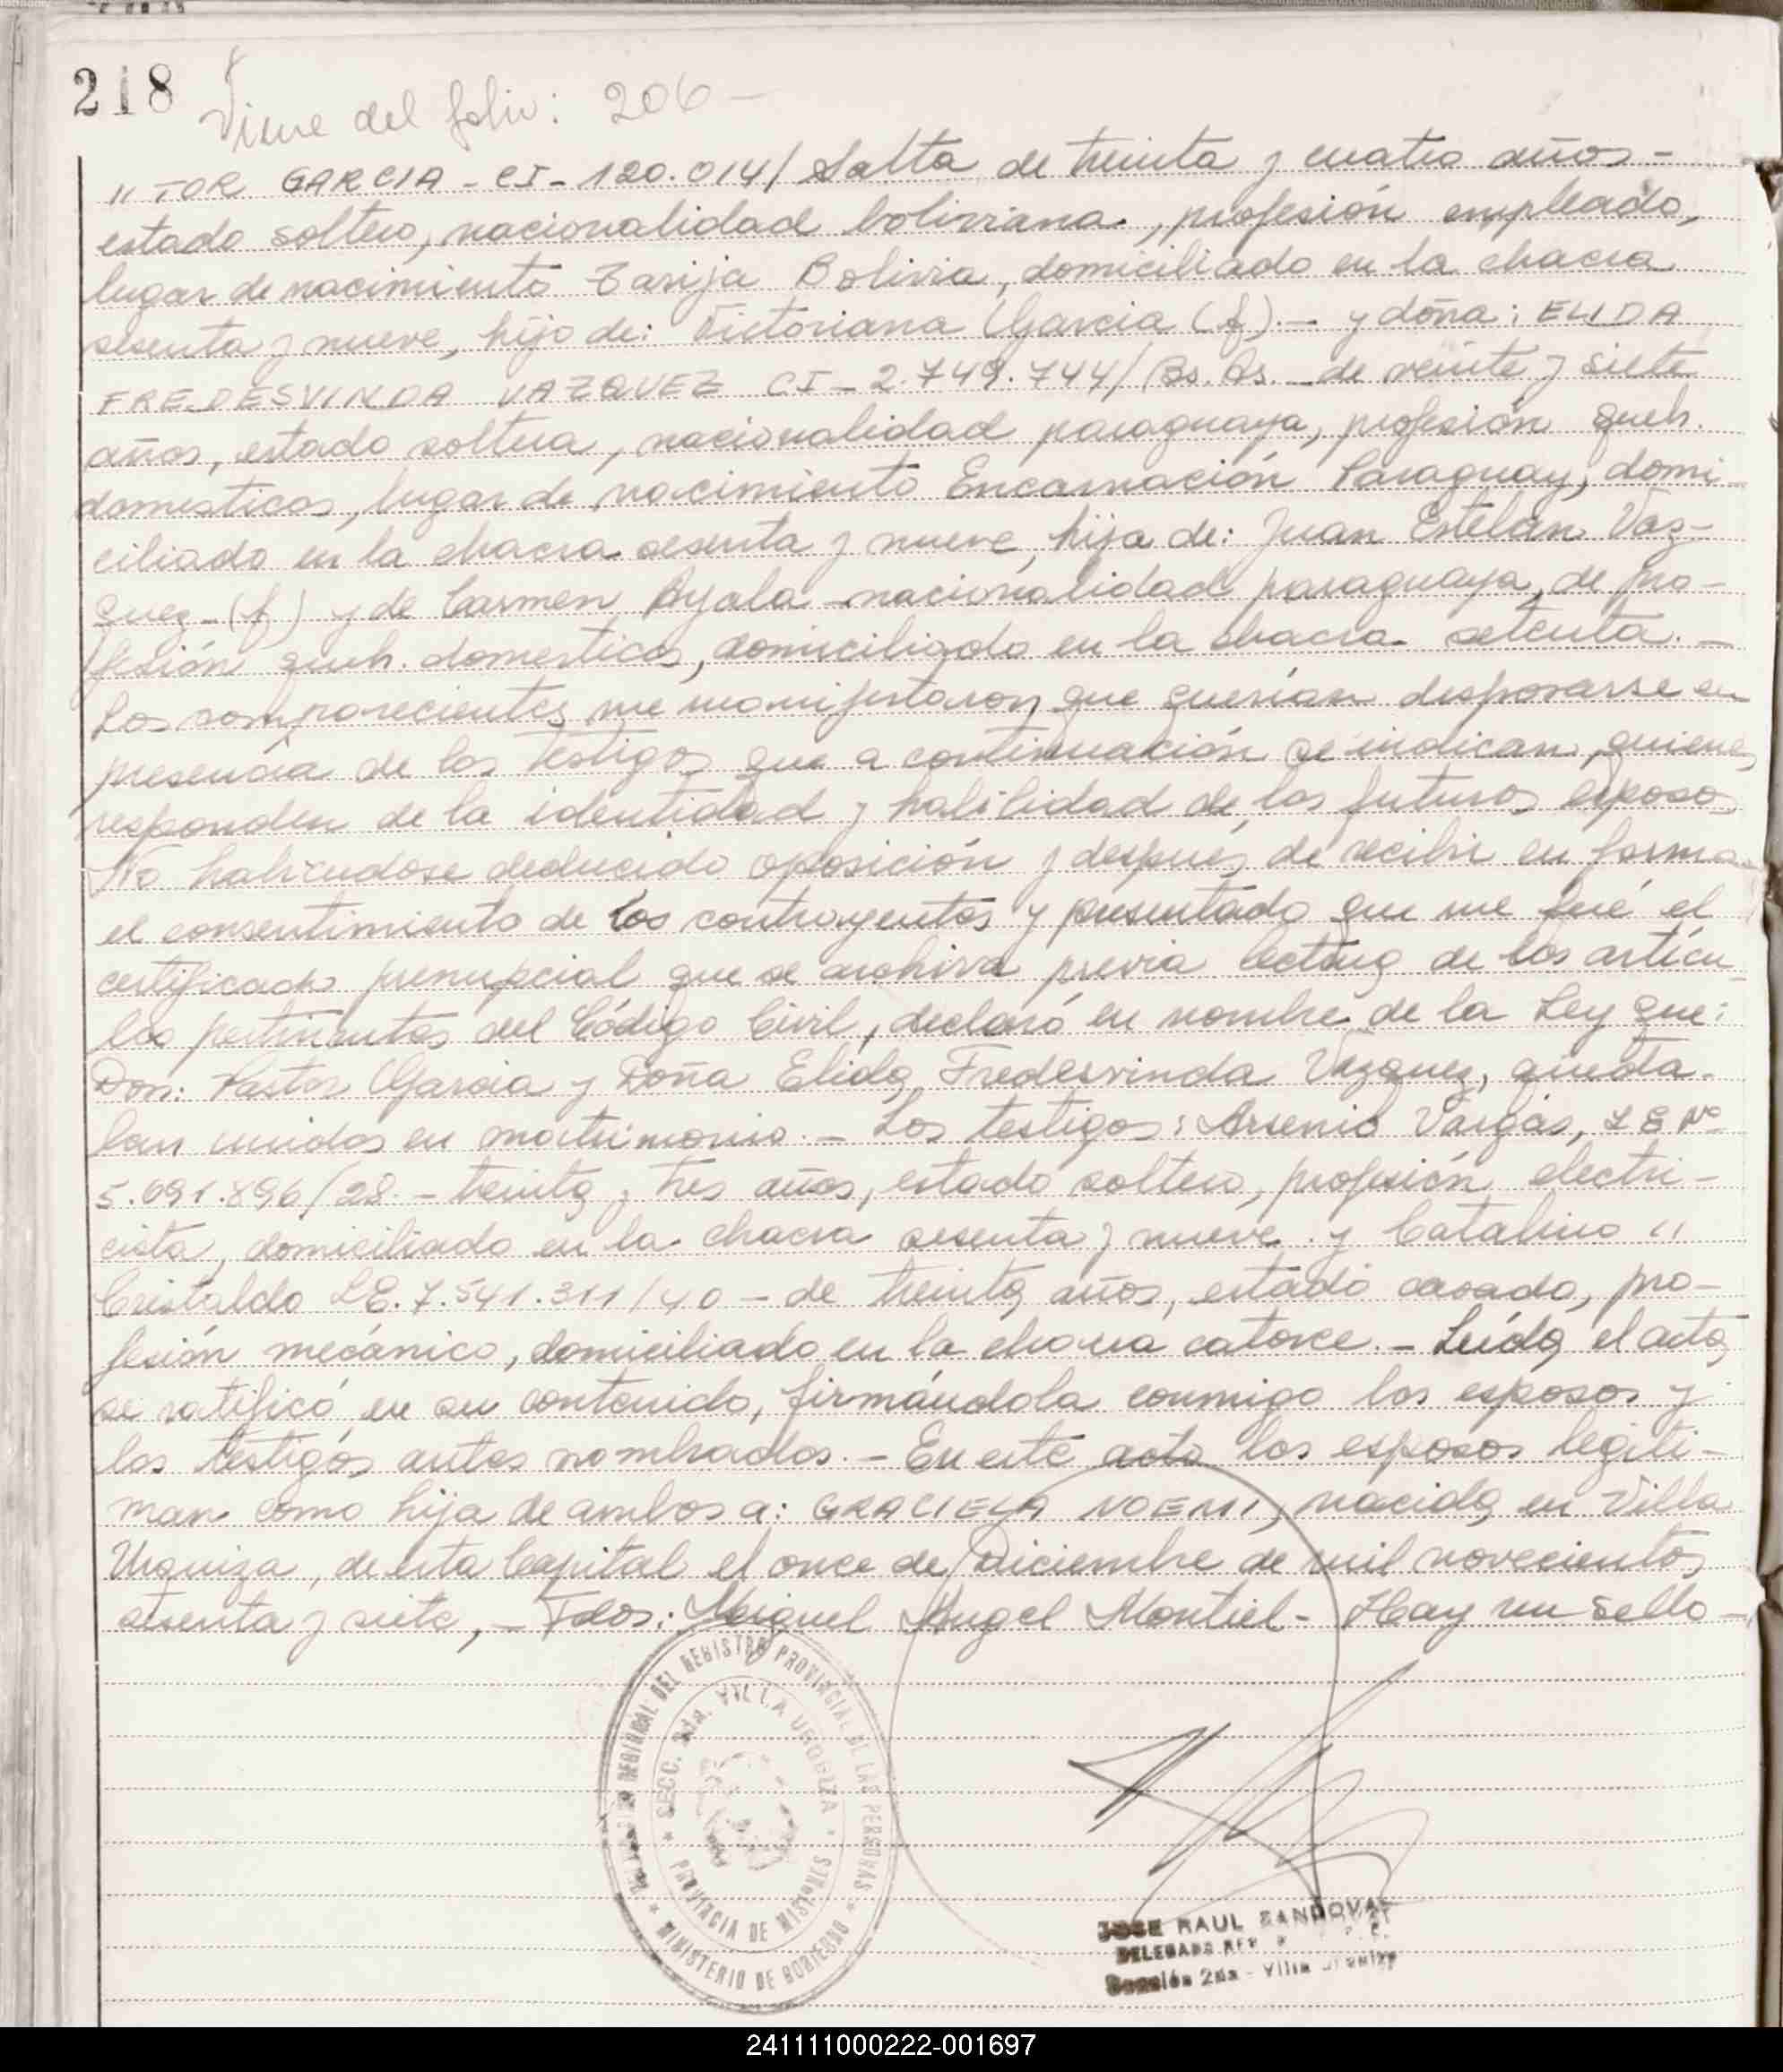 218
Viene del folio: 206 -
" TOR GARCIA - CI - 120.014/ Salta de treinta y cuatro años -
estado soltero, nacionalidad boliviana, profesión empleado,
lugar de nacimiento Tarija Bolivia, domiciliado en la chacra
sesenta y nueve, hijo de: Victoriana Garcia (f). - y doña: ELIDA
FREDESVINDA VAZQUEZ CI - 2.749.744/ Bs. As. - de veinte y siete
años, estado soltera, nacionalidad paraguaya, profesión queh.
domesticos, lugar de nacimiento Encarnación Paraguay, domi-
ciliado en la chacra sesenta y nueve, hija de: Juan Esteban Vaz-
quez - (f) y de Carmen Ayala - nacionalidad paraguaya, de pro-
fesión queh. domesticos, domiciliado en la chacra setenta. -
Los comparecientes me manifestaron que querían desposarse en
presencia de los testigos que a continuación se indican, quienes
responden de la identidad y habilidad de los futuros esposos
No habiendose deducido oposición y después de recibir en forma
el consentimiento de los contrayentes y presentado que me fué el
certificado prenupcial que se archiva previa lectura de los artícu-
los pertinentes del Código Civil, declaró en nombre de la Ley que:
Don: Pastor Garcia y Doña Elida Fredesvinda Vazquez, queda-
ban unidos en matrimonio. - Los testigos: Arsenio Vargas, LE Nº
5.091.896/28. - treinta y tres años, estado soltero, profesión electri-
cista, domiciliado en la chacra sesenta y nueve y Catalino "
Cristaldo LE. 7.541.311/40 - de treinta años, estado casado, pro-
fesión mecánico, domiciliado en la chacra catorce. - Leída el acta,
se ratificó en su contenido, firmándola conmigo los esposos y
los testigos antes nombrados. - En este acto los esposos legiti-
man como hija de ambos a: GRACIELA NOEMI, nacida en Villa
Urquiza, de esta Capital el once de Diciembre de mil novecientos
sesenta y siete, - Fdos: Miguel Angel Montiel - Hay un sello -
REGIONAL DEL REGISTRO PROVINCIAL DE LAS PERSONAS
* MINISTERIO DE GOBIERNO *
* SECC. 2da. VILLA URQUIZA *
PROVINCIA DE MISIONES
JOSE RAUL SANDOVAL
DELEGADO
Sección 2da - Villa Urquiza
241111000222-001697